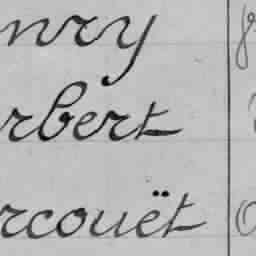 nry
rbert
rcouët